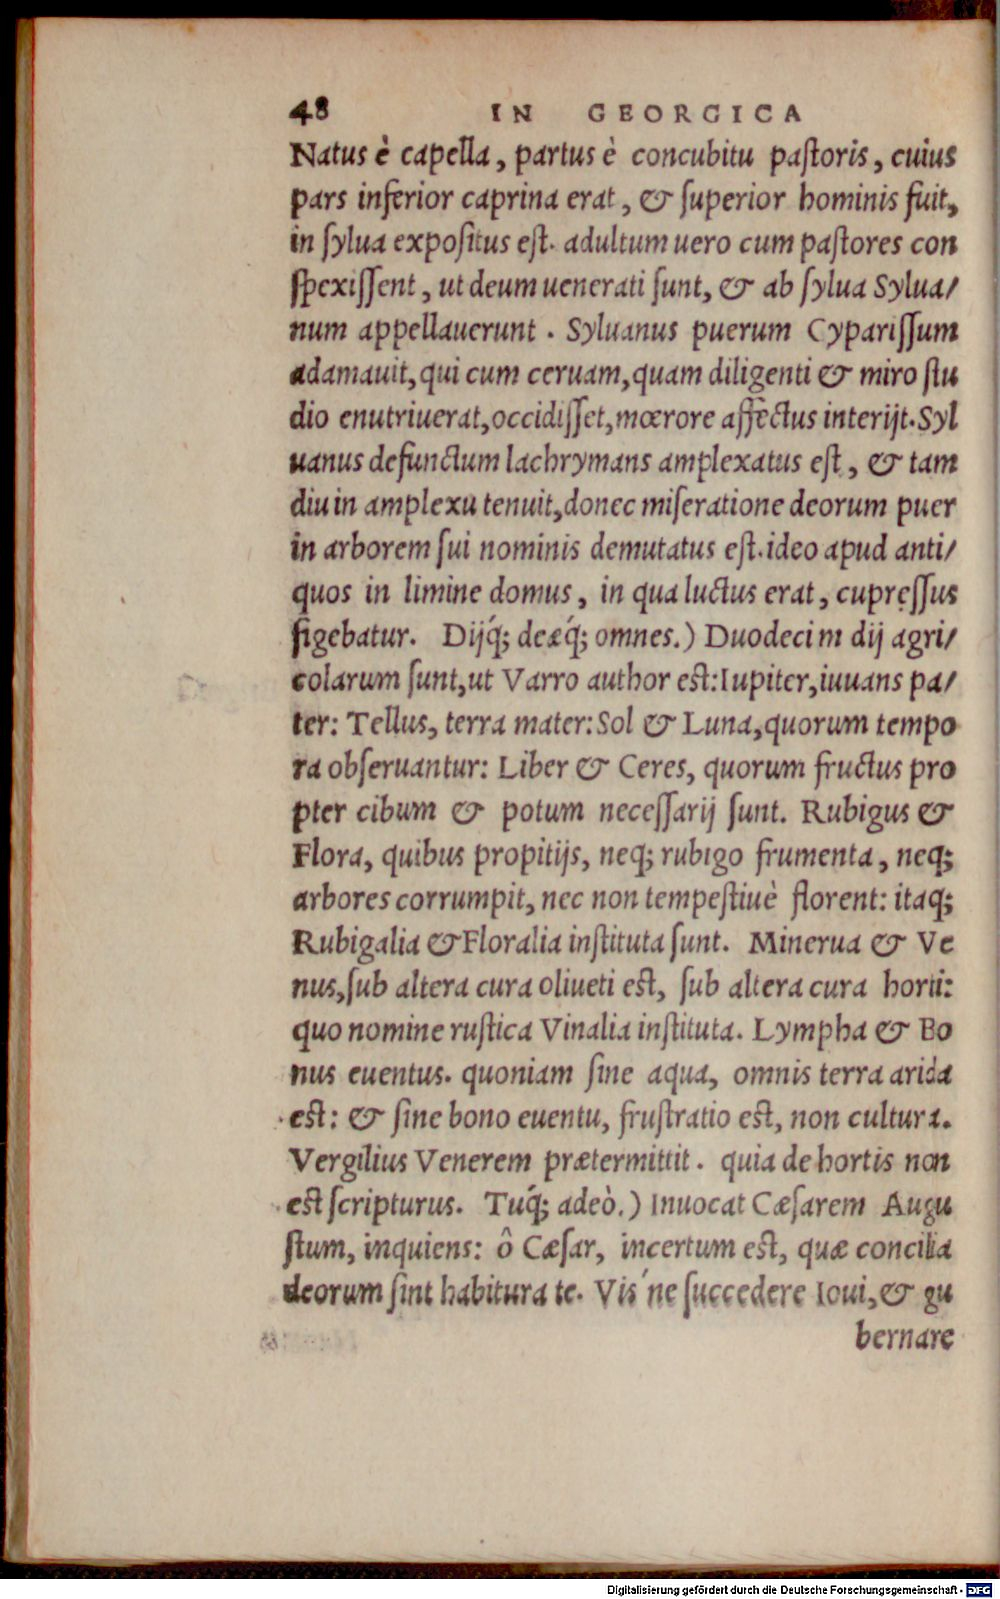 48 IN GEORGICA
Natus è capella, partus è concubitu paſtoris, cuius
pars inferior caprina erat, & ſuperior hominis fuit,
in ſylua expoſitus eſt. adultum uero cum paſtores con
ſpexiſſent, ut deum uenerati ſunt, & ab ſylua Sylua/
num appellauerunt. Syluanus puerum Cypariſſum
adamauit, qui cum ceruam, quam diligenti & miro ſtu
dio enutriuerat, occidiſſet, mœrore affectus interijt. Syl
uanus defunctum lachrymans amplexatus eſt, & tam
diu in amplexu tenuit, donec miſeratione deorum puer
in arborem ſui nominis demutatus eſt. ideo apud anti/
quos in limine domus, in qua luctus erat, cupreſſus
figebatur. Dijq́; deæq́; omnes.) Duodecim dij agri/
colarum ſunt, ut Varro author est: Iupiter, iuuans pa/
ter: Tellus, terra mater: Sol & Luna, quorum tempo
ra obſeruantur: Liber & Ceres, quorum fructus pro
pter cibum & potum neceſſarij ſunt. Rubigus &
Flora, quibus propitijs, neq; rubigo frumenta, neq;
arbores corrumpit, nec non tempeſtiuè florent: itaq;
Rubigalia & Floralia inſtituta ſunt. Minerua & Ve
nus, ſub altera cura oliueti est, ſub altera cura horti:
quo nomine ruſtica Vinalia inſtituta. Lympha & Bo
nus euentus. quoniam ſine aqua, omnis terra arida
est: & ſine bono euentu, fruſtratio est, non cultura.
Vergilius Venerem prætermittit. quia de hortis non
est ſcripturus. Tuq́; adeò.) Inuocat Cæſarem Augu
ſtum, inquiens: ô Cæſar, incertum est, quæ concilia
deorum ſint habitura te. Vis ́ne ſuccedere Ioui, & gu
bernare
Digitalisierung gefördert durch die Deutsche Forschungsgemeinschaft - DFG